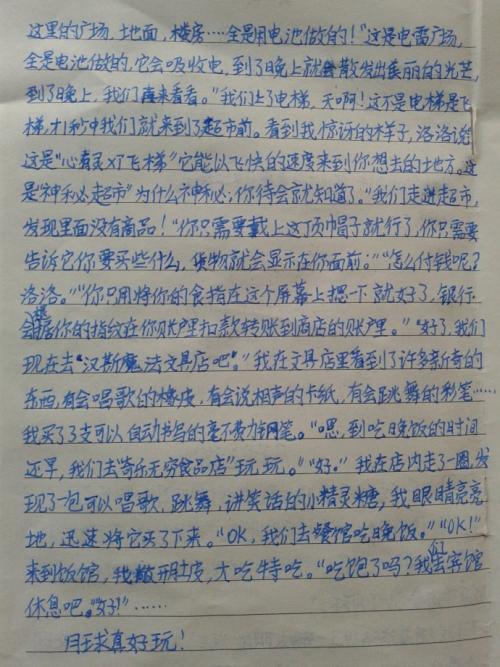 这里的广场，地面，楼房……全是用电池做的！”这是电雷广场，
全是电池做的，它会吸收电，到了晚上就会散发出美丽的光芒，
到了晚上，我们再来看看。”我们上了电梯，天啊！这不是电梯是飞
梯，才1秒中我们就来到了超市前。看到我惊讶的样子，洛洛说
这是“心灵对飞梯”它能以飞快的速度来到你想去的地方。这
是“神秘超市”为什么神秘，你待会就知道了。”我们走进超市，
发现里面没有商品！“你只需要戴上这丁页帽子就行了，你只需要
告诉它你要买些什么，货物就会显示在你面前；”“怎么付钱呢？
洛洛。”“你只用将你的食指在这个屏幕上摁一下就好了，银行
会根据你的指纹在你账户里扣款转账到商店的账户里。”“好了，我们
现在去“汉斯魔法文具店吧。”我在文具店里看到了许多新奇的
东西，有会唱歌的橡皮，有会说相声的卡纸，有会跳舞的彩笔……
我买了3支可以自动书写的毫不费力钢笔。“嗯，到吃晚饭的时间
还早，我们去“奇乐无穷食品店”玩玩。”“好。”我在店内走了一圈，发
现了一包可以唱歌，跳舞，讲笑话的小精灵糖，我眼睛亮亮
地，迅速将它买了下来。“OK，我们去餐馆吃晚饭。”“OK！”
来到饭馆，我敞开肚皮，大吃特吃。“吃饱了吗？我们去宾馆
休息吧。”“好！”……
月球真好玩！